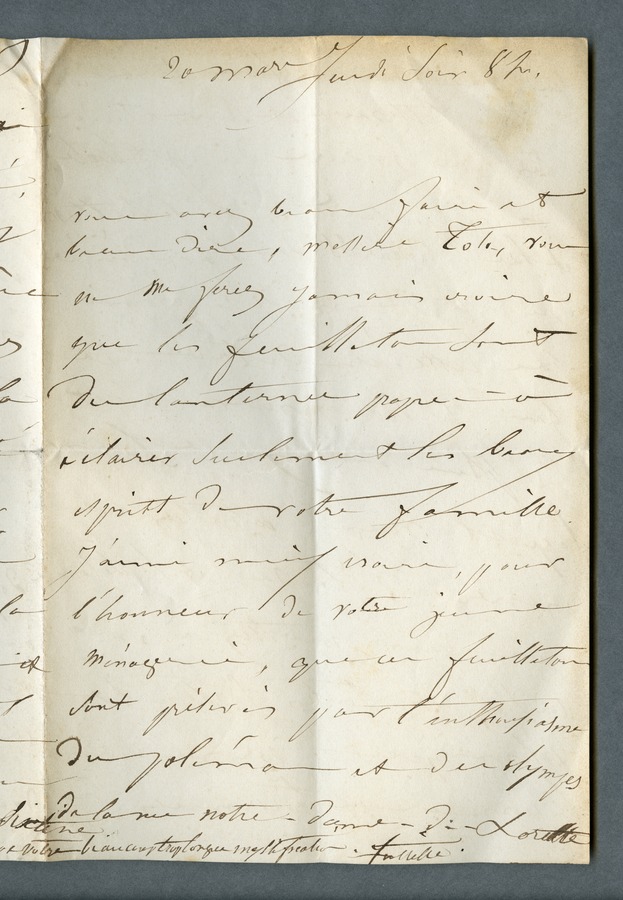 20 mars Jeudi Soir 8 h.
vous avez beau faire et
beau dire, messire Toto, vous
ne me ferez jamais croire
que les feuilleton sont
des lanternes propre à
éclairer seulement les beaux
esprits de votre famille.
J'aime mieux croire, pour
l'honneur de votre jeune
ménagerie, que ces feuilleton
sont prélevés par l'enthousiasme
du et des olympes
de la rue notre-dame-de-Lorette
votre beaucoup trop longue mystification.